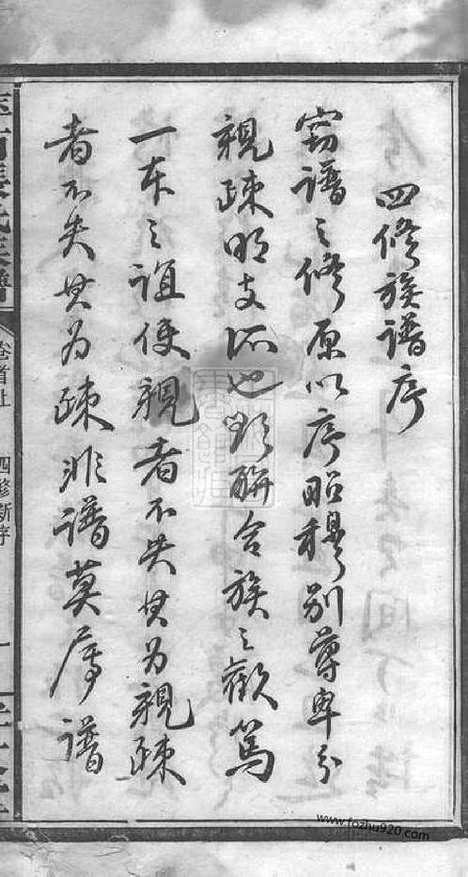 四修族譜序
窃譜之修原以序昭穆别尊卑分
親疎明支派也联合族之歡篤
一本之誼使親者不失其为親疎
者不失其为疎非譜莫属譜
姜氏族譜
卷首址
四修新序
一
www.fozhu920.com